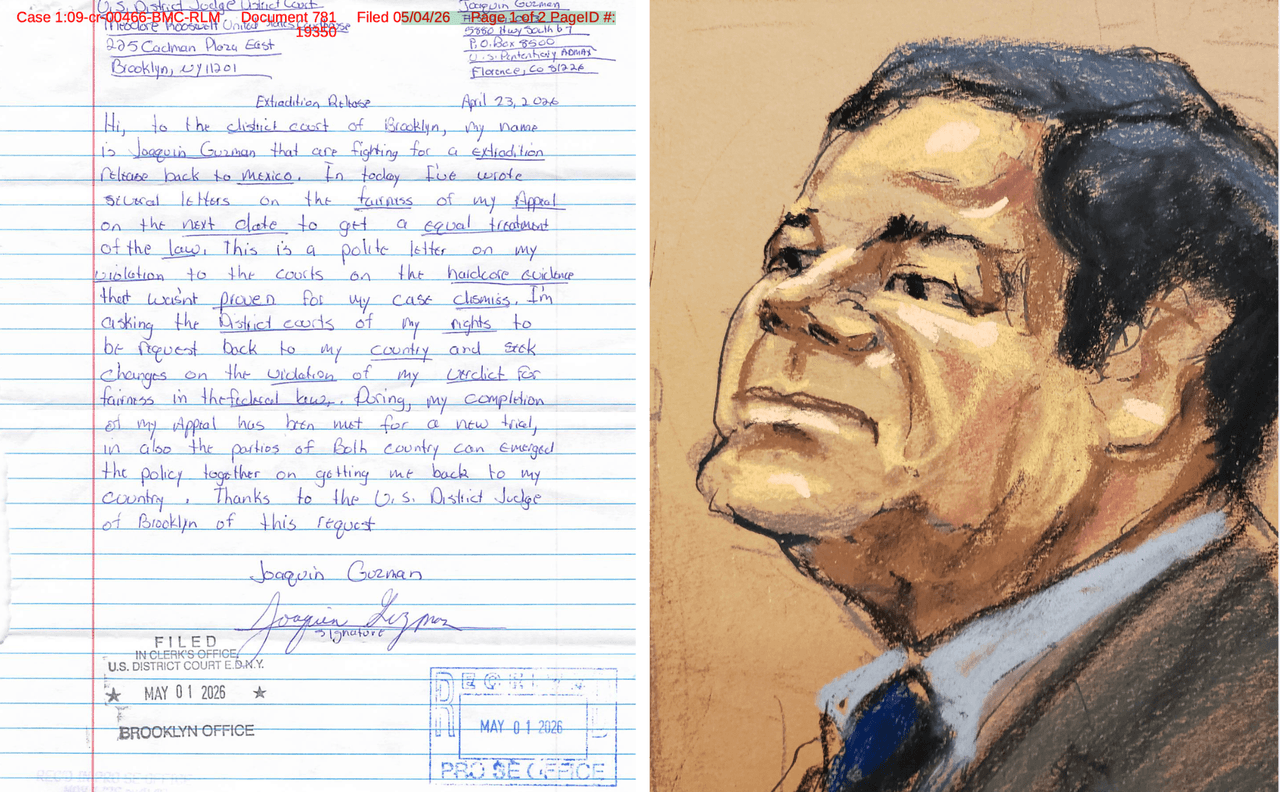 Case 1:09-cr-00466-BMC-RLM Document 781 Filed 05/04/26 Page 1 of 2 PageID #:
19350
U.S. District Judge District Court
Theodore Roosevelt United States
225 Cadman Plaza East
Brooklyn, NY 11201
Joaquin Guzman
5880 Hwy South 67
P.O. Box 8500
U.S. Penitentiary ADMAX
Florence, Co 81226
Extradition Release April 23, 2026
Hi, to the district court of Brooklyn, my name
is Joaquin Guzman that are fighting for a extradition
release back to Mexico. In today I've wrote
several letters on the fairness of my Appeal
on the next date to get a equal treatment
of the law. This is a polite letter on my
violation to the courts on the hardcore evidence
that wasn't proven for my case dismiss. I'm
asking the District courts of my rights to
be request back to my country and seek
changes on the violation of my verdict for
fairness in the federal law. During, my completion
of my Appeal has been met for a new trial,
in also the parties of Both country can emerged
the policy together on getting me back to my
country. Thanks to the U.S. District Judge
of Brooklyn of this request
Joaquin Guzman
Joaquin Guzman
signature
FILED
IN CLERK'S OFFICE
U.S. DISTRICT COURT E.D.N.Y.
★ MAY 01 2026 ★
BROOKLYN OFFICE
MAY 01 2026
PRO SE OFFICE